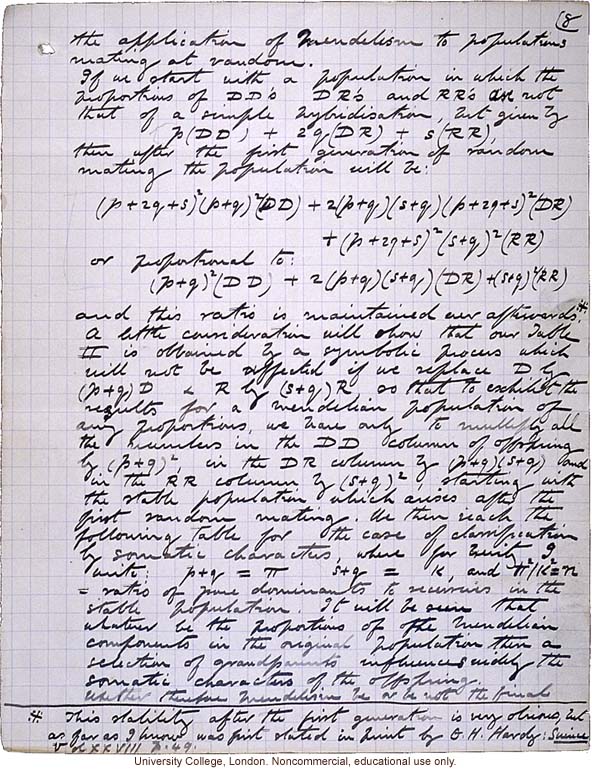 (8
the application of Mendelism to populations
mating at random.
If we start with a population in which the
proportions of DD's DR's and RR's are not
that of a simple hybridisation, but given by
p(DD) + 2q(DR) + s(RR),
then after the first generation of random
mating the population will be:
(p+2q+s)²(p+q)²(DD) + 2(p+q)(s+q)(p+2q+s)²(DR)
+ (p+2q+s)²(s+q)²(RR)
or proportional to:
(p+q)²(DD) + 2(p+q)(s+q)(DR) + (s+q)²(RR)
and this ratio is maintained ever afterwards.*
A little consideration will show that our Table
II is obtained by a symbolic process which
will not be affected if we replace D by
(p+q)D & R by (s+q)R so that to exhibit the
results for a mendelian population of
any proportions, we have only to multiply all
the numbers in the DD column of offspring
by (p+q)², in the DR column by (p+q)(s+q) and
in the RR column by (s+q)², starting with
the stable population which arises after the
first random mating. We then reach the
following table for the case of classification
by somatic characters, where for brevity I
write: p+q = π s+q = κ, and π²/κ² = n
= ratio of pure dominants to recessives in the
stable population. It will be seen that
whatever be the proportions of the mendelian
components in the original population then a
selection of grandparents influences the
somatic characters of the offspring.
Whether therefore Mendelism be or be not the final
* This stability after the first generation is very obvious, but
as far as I know was first stated in print by G. H. Hardy: Science
vol XXVIII p. 49.
University College, London. Noncommercial, educational use only.